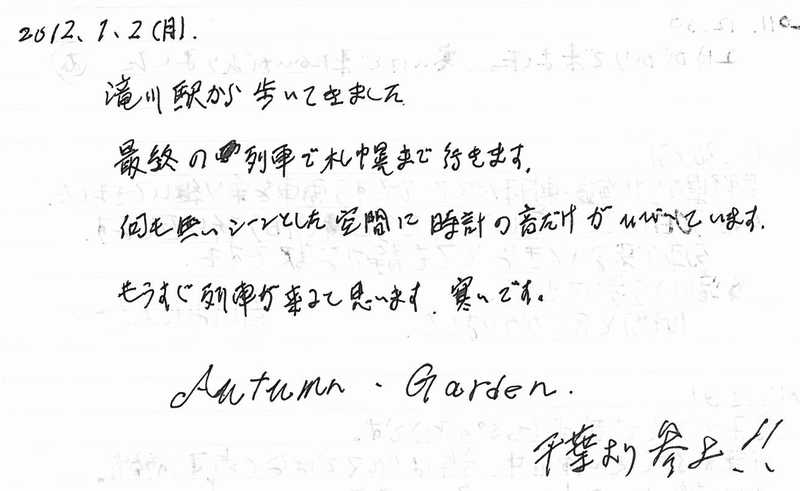 2012.1.2(月).
滝川駅から歩いてきました
最終の列車で札幌まで行きます.
何も無いシーンとした空間に時計の音だけがひびいています.
もうすぐ列車が来ると思います.寒いです。
Autumn・Garden.
千葉より参上!!